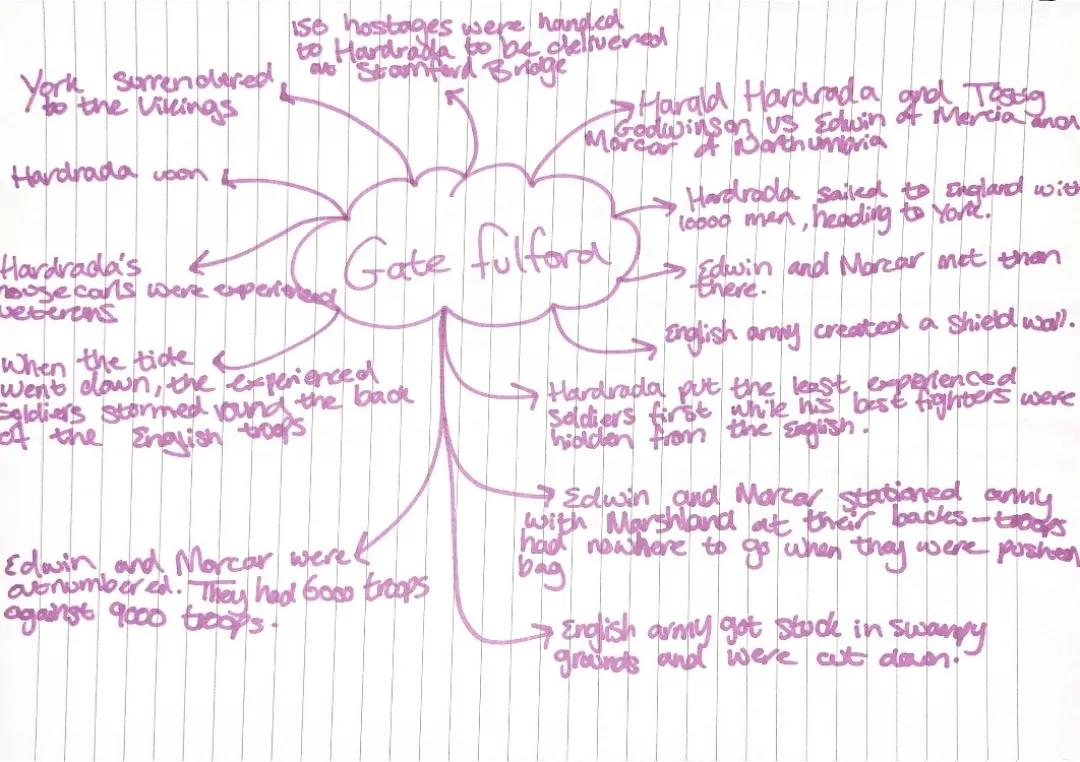 150 hostages were handed
to Hardrada to be delivered
at Stamford Bridge
York surrendered
to the Vikings
Harald Hardrada and Tostig
Godwinson vs Edwin of Mercia and
Morcar of Northumbria
Hardrada won
Hardrada sailed to England with
10000 men, heading to York.
Gate fulford
Edwin and Morcar met them
there.
Hardrada's
housecarls were experienced
veterans
English army created a shield wall.
When the tide
went down, the experienced
soldiers stormed round the back
of the English troops
Hardrada put the least experienced
soldiers first while his best fighters were
hidden from the English.
Edwin and Morcar stationed army
with Marshland at their backs - troops
had nowhere to go when they were pushed
bag
Edwin and Morcar were
outnumbered. They had 6000 troops
against 9000 troops.
English army got stuck in swampy
grounds and were cut down.